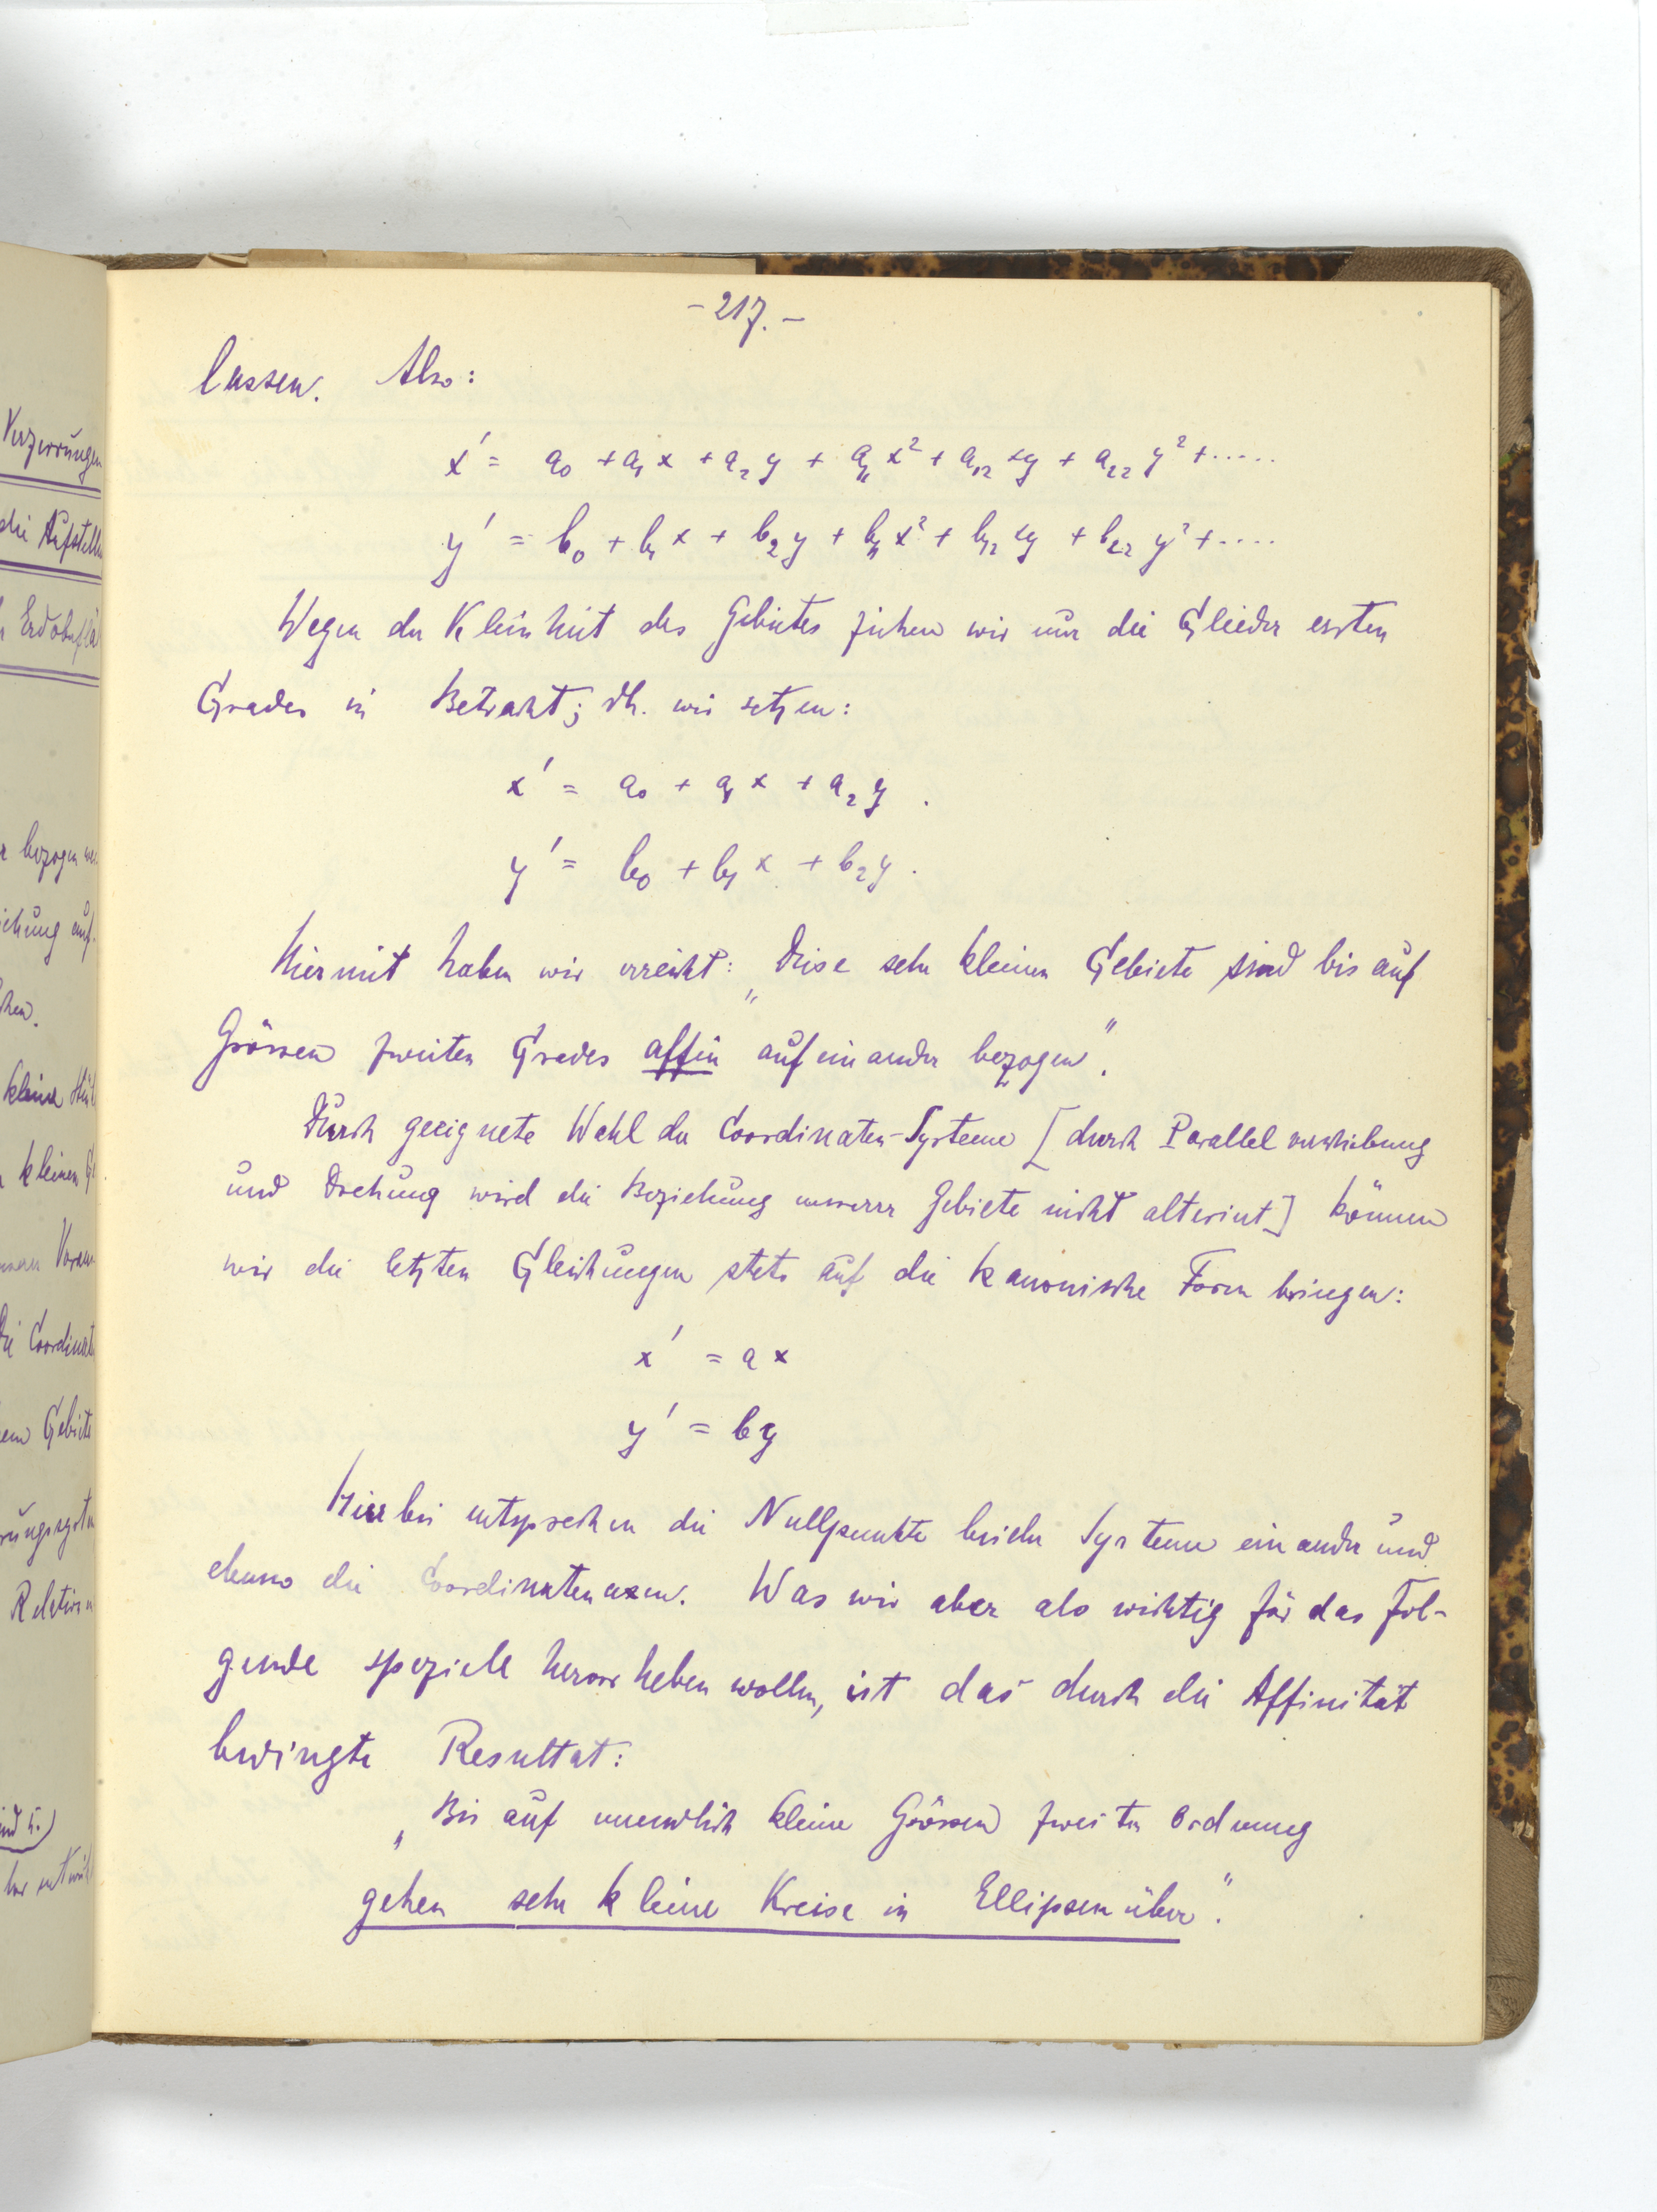 -217.-
lassen. Also:
x' = a₀ + a₁x + a₂y + a₁₁x² + a₁₂xy + a₂₂y² + .....
y' = b₀ + b₁x + b₂y + b₁₁x² + b₁₂xy + b₂₂y² + ....
Wegen der Kleinheit des Gebietes ziehen wir nur die Glieder ersten
Grades in Betracht; dh. wir setzen:
x' = a₀ + a₁x + a₂y.
y' = b₀ + b₁x + b₂y.
Hiermit haben wir erreicht: „Diese sehr kleinen Gebiete sind bis auf
Grössen zweiten Grades affin aufeinander bezogen".
Durch geeignete Wahl der Coordinaten-Systeme [durch Parallelverschiebung
und Drehung wird die Beziehung unserer Gebiete nicht alteriert] können
wir die letzten Gleichungen stets auf die kanonische Form bringen:
x' = ax
y' = by
Hierbei entsprechen die Nullpunkte beider Systeme einander und
ebenso die Coordinatenaxen. Was wir aber als wichtig für das Fol-
gende speziell hervorheben wollen, ist das durch die Affinität
bedingte Resultat:
„Bis auf unendlich kleine Grössen zweiter Ordnung
gehen sehr kleine Kreise in Ellipsen über".
Verzerrungen
die Aufstell
Erdoberflä
bezogen
kleine
kleinen
Die Coordinat
Gebiete